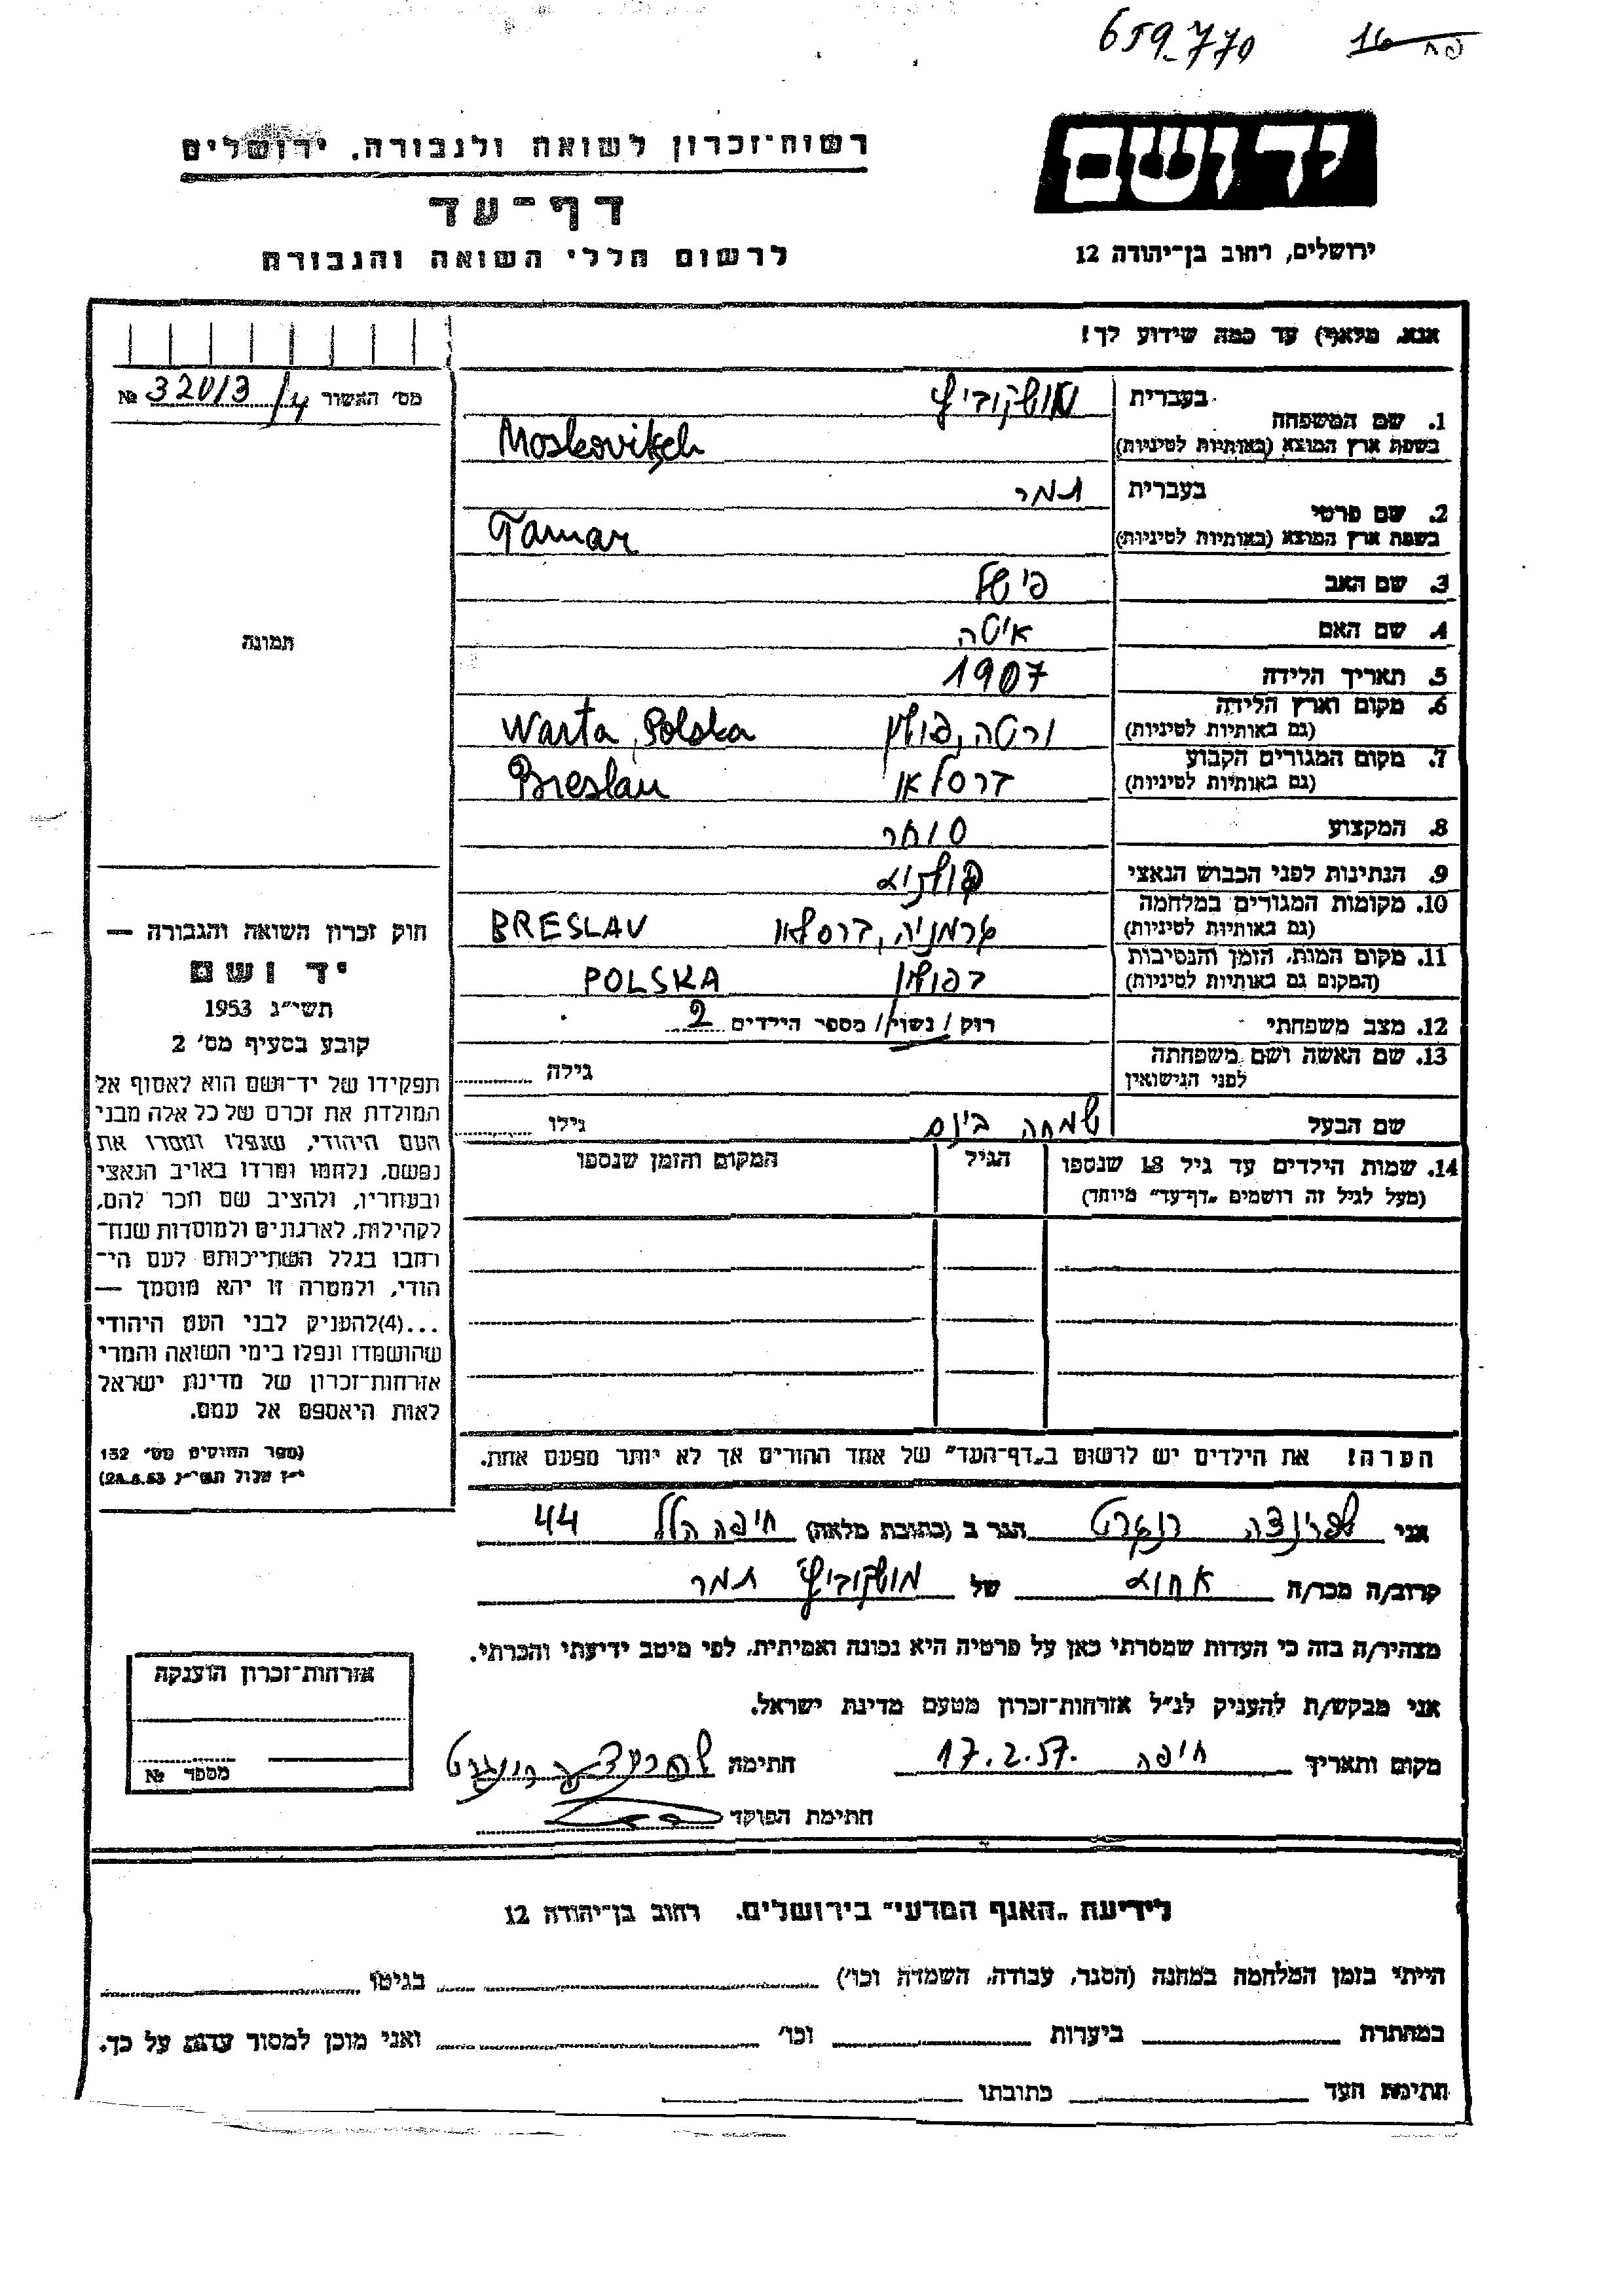 659_770
16 פח
יד ושם
ירושלים, רחוב בן־יהודה 12
רשות־זכרון לשואה ולגבורה. ירושלים
דף־עד
לרשום חללי השואה והגבורה
אנא, מלא(י) עד כמה שידוע לך!
מס' האשור 32013/4 №
תמונה
חוק זכרון השואה והגבורה —
יד ושם
תשי"ג 1953
קובע בסעיף מס' 2
תפקידו של יד־ושם הוא לאסוף אל
המולדת את זכרם של כל אלה מבני
העם היהודי, שנפלו ומסרו את
נפשם, נלחמו ומרדו באויב הנאצי
ובעוזריו, ולהציב שם וזכר להם,
לקהילות, לארגונים ולמוסדות שנח־
רבו בגלל השתייכותם לעם הי־
הודי, ולמטרה זו יהא מוסמך —
...(4)להעניק לבני העם היהודי
שהושמדו ונפלו בימי השואה והמרי
אזרחות־זכרון של מדינת ישראל
לאות היאספם אל עמם.
(ספר החוקים מס' 132
י"ז אלול תשי"ג 28.8.53)
1. שם המשפחה בעברית מושקוביץ
בשפת ארץ המוצא (באותיות לטיניות) Moskovitsch
2. שם פרטי בעברית תמר
בשפת ארץ המוצא (באותיות לטיניות) Tamar
3. שם האב פישל
4. שם האם איטה
5. תאריך הלידה 1907
6. מקום וארץ הלידה (גם באותיות לטיניות) ורטה, פולין Warta, Polska
7. מקום המגורים הקבוע (גם באותיות לטיניות) ברסלאו Breslau
8. המקצוע סוחר
9. הנתינות לפני הכבוש הנאצי פולניה
10. מקומות המגורים במלחמה (גם באותיות לטיניות) גרמניה, ברסלאו BRESLAV
11. מקום המות, הזמן והנסיבות (המקום גם באותיות לטיניות) בפולין POLSKA
12. מצב משפחתי רוק / נשוי / מספר הילדים 2
13. שם האשה ושם משפחתה לפני הנישואין גילה
שם הבעל שמחה בינם גילו
14. שמות הילדים עד גיל 18 שנספו הגיל המקום והזמן שנספו
(מעל לגיל זה רושמים "דף־עד" מיוחד)
הערה! את הילדים יש לרשום ב"דף־העד" של אחד ההורים אך לא יותר מפעם אחת.
אני שפרינצה הגר ב (כתובת מלאה) חיפה הלל 44
קרוב/ה מכר/ה אחות של מושקוביץ תמר
מצהיר/ה בזה כי העדות שמסרתי כאן על פרטיה היא נכונה ואמיתית, לפי מיטב ידיעתי והכרתי.
אני מבקש/ת להעניק לנ"ל אזרחות־זכרון מטעם מדינת ישראל.
מקום ותאריך חיפה 17.2.57. חתימה
חתימת הפוקד
אזרחות־זכרון הוענקה
מספר №
לידיעת "האגף המדעי" בירושלים. רחוב בן־יהודה 12
הייתי בזמן המלחמה במחנה (הסגר, עבודה, השמדה וכו') בגיטו
במחתרת ביערות וכו' ואני מוכן למסור עדות על כך.
חתימת העד כתובתו